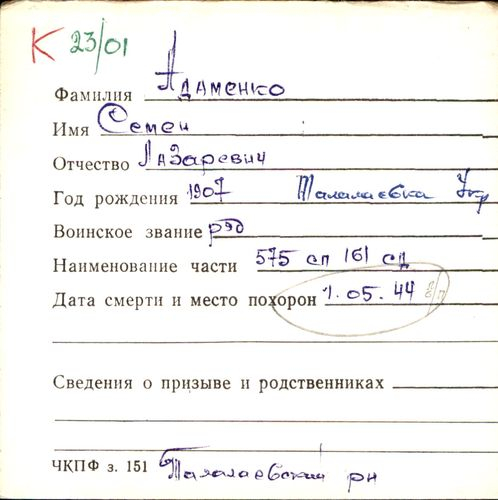 К 23/01
Фамилия Адаменко
Имя Семен
Отчество Лазаревич
Год рождения 1907 Талалаевка Укр
Воинское звание ряд
Наименование части 575 сп 161 сд
Дата смерти и место похорон 1.05.44
Сведения о призыве и родственниках
ЧКПФ з. 151 Талалаевский рн